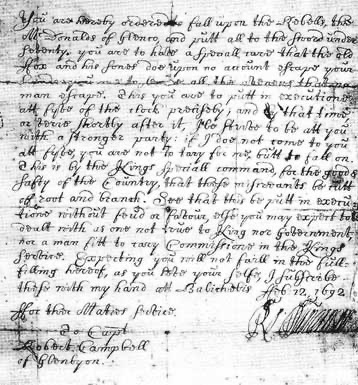 You are hereby ordered to fall upon the Rebells, the
McDonalds of Glenco, and putt all to the sword under
seventy. you are to have a speciall care that the old
Fox and his sones doe upon no account escape your
hands, you are to secure all the avenues that no
man escape. This you are to putt in executione
att fyve of the clock precisely; and by that time,
or verie shortly after it, I'le strive to be att you
with a stronger party: if I doe not come to you
att fyve, you are not to tary for me, butt to fall on.
This is by the Kings speciall command, for the good &
safty of the Country, that these miscreants be cutt
off root and branch. See that this be putt in execu
tione without feud or favour, else you may expect to be
dealt with as one not true to King nor Government,
nor a man fitt to cary Commissione in the Kings
service. Expecting you will not faill in the full-
filling hereof, as you love your selfe, I subscribe
these with my hand att Balicholis Feb 12, 1692
For ther Maties service
To Capt
Robert Campbell
of Glenlyon